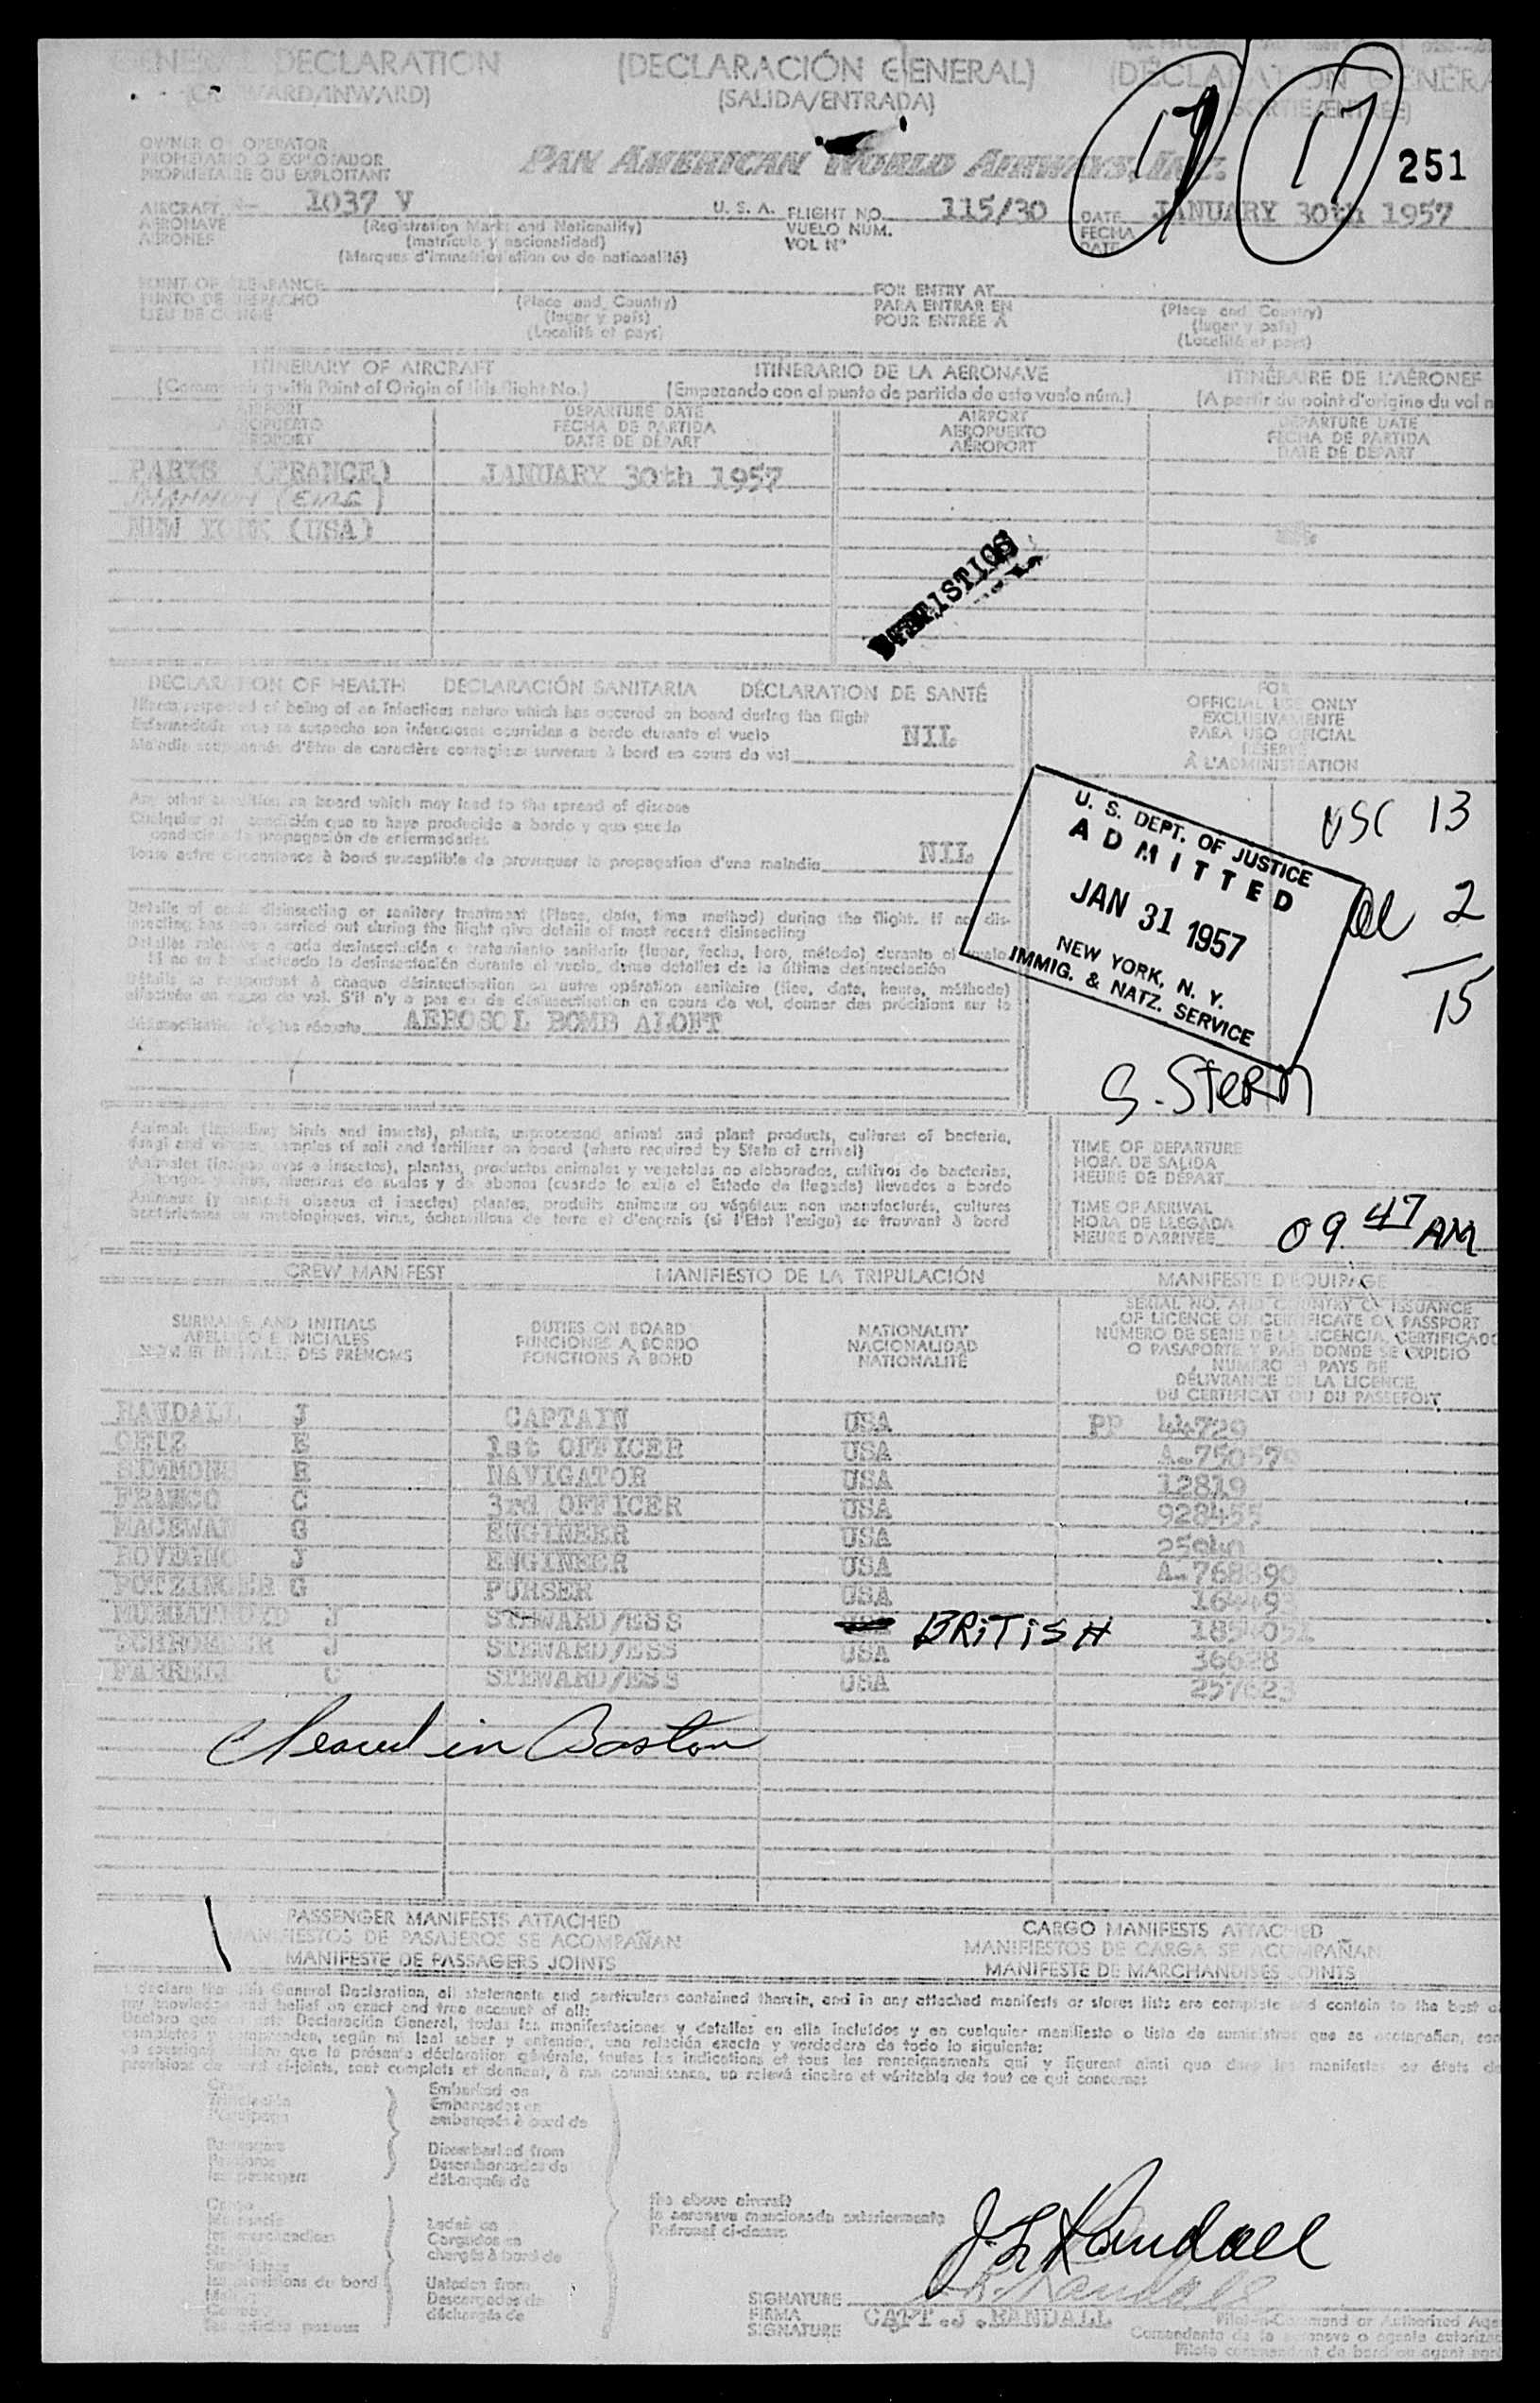 GENERAL DECLARATION (DECLARACIÓN GENERAL) (DÉCLARATION GÉNÉRA
(OUTWARD/INWARD) (SALIDA/ENTRADA) (SORTIE/ENTRÉE)
17 17 251
OWNER OR OPERATOR
PROPIETARIO O EXPLOTADOR
PROPRIÉTAIRE OU EXPLOITANT
PAN AMERICAN WORLD AIRWAYS, INC.
AIRCRAFT N- 1037 V U. S. A. FLIGHT NO. 115/30 DATE JANUARY 30th 1957
AERONAVE (Registration Marks and Nationality) VUELO NÚM. FECHA
AÉRONEF (matrícula y nacionalidad) VOL Nº DATE
(Marques d'immatriculation ou de nationalité)
POINT OF CLEARANCE FOR ENTRY AT
PUNTO DE DESPACHO (Place and Country) PARA ENTRAR EN (Place and Country)
LIEU DE CONGÉ (lugar y país) POUR ENTRÉE À (lugar y país)
(Localité et pays) (Localité et pays)
ITINERARY OF AIRCRAFT ITINERARIO DE LA AERONAVE ITINÉRAIRE DE L'AÉRONEF
(Commencing with Point of Origin of this flight No.) (Empezando con el punto de partida de este vuelo núm.) (A partir du point d'origine du vol n
AIRPORT DEPARTURE DATE AIRPORT DEPARTURE DATE
AEROPUERTO FECHA DE PARTIDA AEROPUERTO FECHA DE PARTIDA
AÉROPORT DATE DE DÉPART AÉROPORT DATE DE DÉPART
PARIS (FRANCE) JANUARY 30th 1957
SHANNON (EIRE)
NEW YORK (USA)
STATISTICS
DECLARATION OF HEALTH DECLARACIÓN SANITARIA DÉCLARATION DE SANTÉ
Illness suspected of being of an infectious nature which has occured on board during the flight
Enfermedades que se sospecha son infecciosas ocurridas a bordo durante el vuelo NIL
Maladie soupçonnée d'être de caractère contagieux survenue à bord en cours de vol
FOR
OFFICIAL USE ONLY
EXCLUSIVAMENTE
PARA USO OFICIAL
RÉSERVÉ
À L'ADMINISTRATION
Any other condition on board which may lead to the spread of disease
Cualquier otra condición que se haya producido a bordo y que pueda
conducir a la propagación de enfermedades
Toute autre circonstance à bord susceptible de provoquer la propagation d'une maladie NIL
U. S. DEPT. OF JUSTICE
ADMITTED
JAN 31 1957
NEW YORK, N. Y.
IMMIG. & NATZ. SERVICE
USC 13
al 2
15
S. Stern
Details of each disinsecting or sanitary treatment (Place, date, time method) during the flight. If no dis-
insecting has been carried out during the flight give details of most recent disinsecting
Detalles relativos a cada desinsectación o tratamiento sanitario (lugar, fecha, hora, método) durante el vuelo
Si no se ha efectuado la desinsectación durante el vuelo, dense detalles de la última desinsectación
Détails se rapportant à chaque désinsectisation ou autre opération sanitaire (lieu, date, heure, méthode)
effectuée en cours de vol. S'il n'y a pas eu de désinsectisation en cours de vol, donner des précisions sur la
désinsectisation la plus récente AEROSOL BOMB ALOFT
Animals (including birds and insects), plants, unprocessed animal and plant products, cultures of bacteria,
fungi and viruses, samples of soil and fertilizer on board (where required by State of arrival)
Animales (incluso aves e insectos), plantas, productos animales y vegetales no elaborados, cultivos de bacterias,
hongos y virus, muestras de suelos y de abonos (cuando lo exija el Estado de llegada) llevados a bordo
Animaux (y compris oiseaux et insectes) plantes, produits animaux ou végétaux non manufacturés, cultures
bactériennes ou mycologiques, virus, échantillons de terre et d'engrais (si l'Etat l'exige) se trouvant à bord
TIME OF DEPARTURE
HORA DE SALIDA
HEURE DE DÉPART
TIME OF ARRIVAL
HORA DE LLEGADA
HEURE D'ARRIVÉE 09 47 AM
CREW MANIFEST MANIFIESTO DE LA TRIPULACIÓN MANIFESTE D'ÉQUIPAGE
SURNAME AND INITIALS
APELLIDO E INICIALES
NOM ET INITIALES DES PRÉNOMS
DUTIES ON BOARD
FUNCIONES A BORDO
FONCTIONS À BORD
NATIONALITY
NACIONALIDAD
NATIONALITÉ
SERIAL NO. AND COUNTRY OF ISSUANCE
OF LICENCE OR CERTIFICATE OR PASSPORT
NÚMERO DE SERIE DE LA LICENCIA, CERTIFICADO
O PASAPORTE Y PAÍS DONDE SE EXPIDIÓ
NUMÉRO ET PAYS DE
DÉLIVRANCE DE LA LICENCE,
DU CERTIFICAT OU DU PASSEPORT
RANDALL J CAPTAIN USA PP 44729
GETZ E 1st OFFICER USA A-750579
SIMMONS R NAVIGATOR USA 12819
FRANCO C 3rd OFFICER USA 928455
MACEWAN G ENGINEER USA 25040
ROVEGNO J ENGINEER USA A-768890
POTZINGER G PURSER USA 164493
J STEWARD/ESS USA BRITISH
J STEWARD/ESS USA 36628
FARRELL C STEWARD/ESS USA 257623
Cleared in Boston
PASSENGER MANIFESTS ATTACHED CARGO MANIFESTS ATTACHED
MANIFIESTOS DE PASAJEROS SE ACOMPAÑAN MANIFIESTOS DE CARGA SE ACOMPAÑAN
MANIFESTE DE PASSAGERS JOINTS MANIFESTE DE MARCHANDISES JOINTS
declare that this General Declaration, all statements and particulars contained therein, and in any attached manifests or stores lists are complete and contain to the best o
my knowledge and belief an exact and true account of all:
Declaro que esta Declaración General, todas las manifestaciones y detalles en ella incluídos y en cualquier manifiesto o lista de suministros que se acompañen, son
completos y comprenden, según mi leal saber y entender, una relación exacta y verdadera de todo lo siguiente:
Je soussigné déclare que la présente déclaration générale, toutes les indications et tous les renseignements qui y figurent ainsi que dans les manifestes ou états de
provisions de bord ci-joints, sont complets et donnent, à ma connaissance, un relevé sincère et véritable de tout ce qui concerne:
Crew
Tripulación
l'équipage
Embarked on
Embarcados en
embarqués à bord de
Passengers
Pasajeros
les passagers
Disembarked from
Desembarcados de
débarqués de
Cargo
Mercancía
les marchandises
Laden on
Cargados en
chargés à bord de
Suministros
les provisions du bord
Unladen from
Descargados de
déchargés de
the above aircraft
la aeronave mencionada anteriormente
l'aéronef ci-dessus
J. L. Randall
SIGNATURE
FIRMA CAPT.J.RANDALL
SIGNATURE
Pilot-in-Command or Authorized Age
Comandante de la aeronave o agente autorizad
Pilote commandant de bord ou agent agré